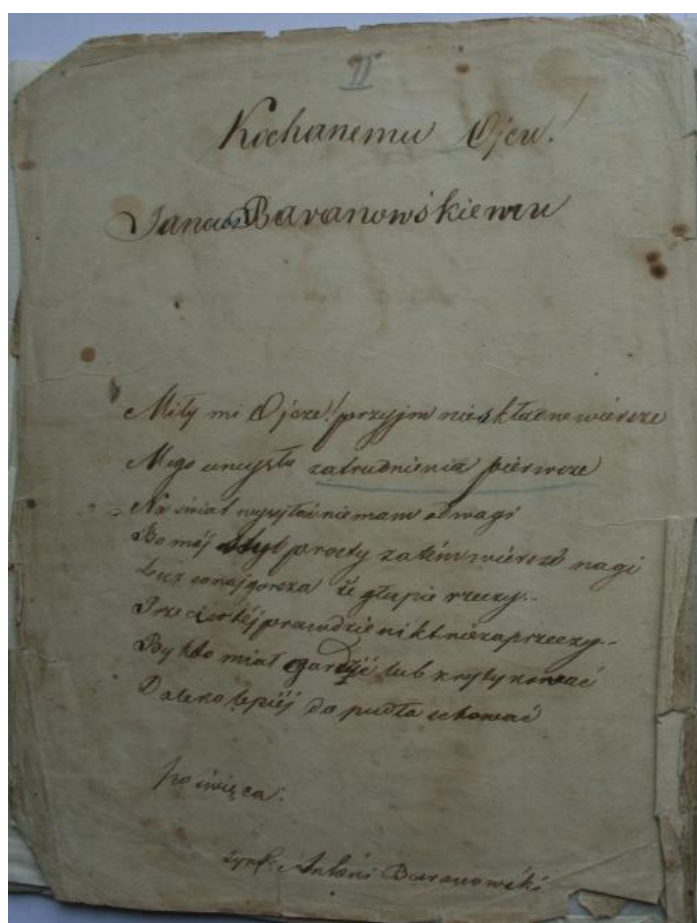 II
Kochanemu Ojcu!
Janowi Baranowskiemu
Miły mi Ojcze! przyjm nieskładne wiérsze
Mego umysłu zatrudnienia piérwsze
Na świat wysyłać niemam odwagi
Bo mój styl prosty zatém wiérsz nagi
Lecz co najgorsza że głupie rzeczy..
I rzeciwtéj prawdzie nikt niezaprzeczy..
By kto miał gardzić lub krytykować
Daleko lepiéj do pudła schować
poświęca:
syn Antoni Baranowski